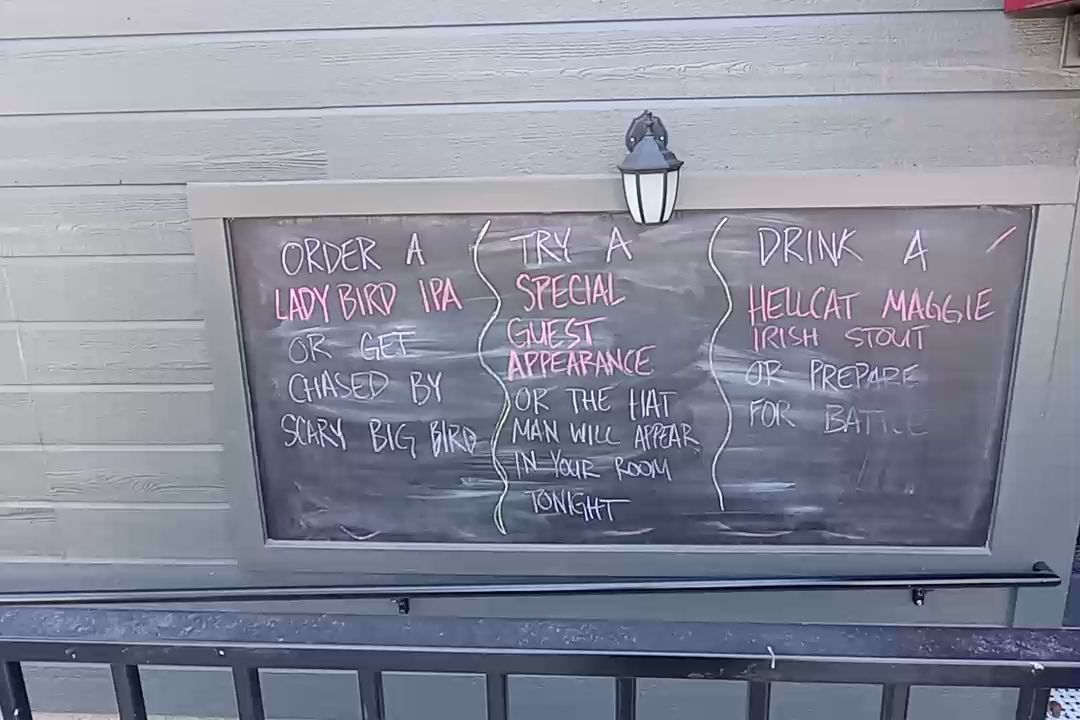 ORDER A
LADYBIRD IPA
OR GET
CHASED BY
SCARY BIG BIRD
TRY A
SPECIAL
GUEST
APPEARANCE
OR THE HAT
MAN WILL APPEAR
IN YOUR ROOM
TONIGHT
DRINK A
HELLCAT MAGGIE
IRISH STOUT
OR PREPARE
FOR BATTLE